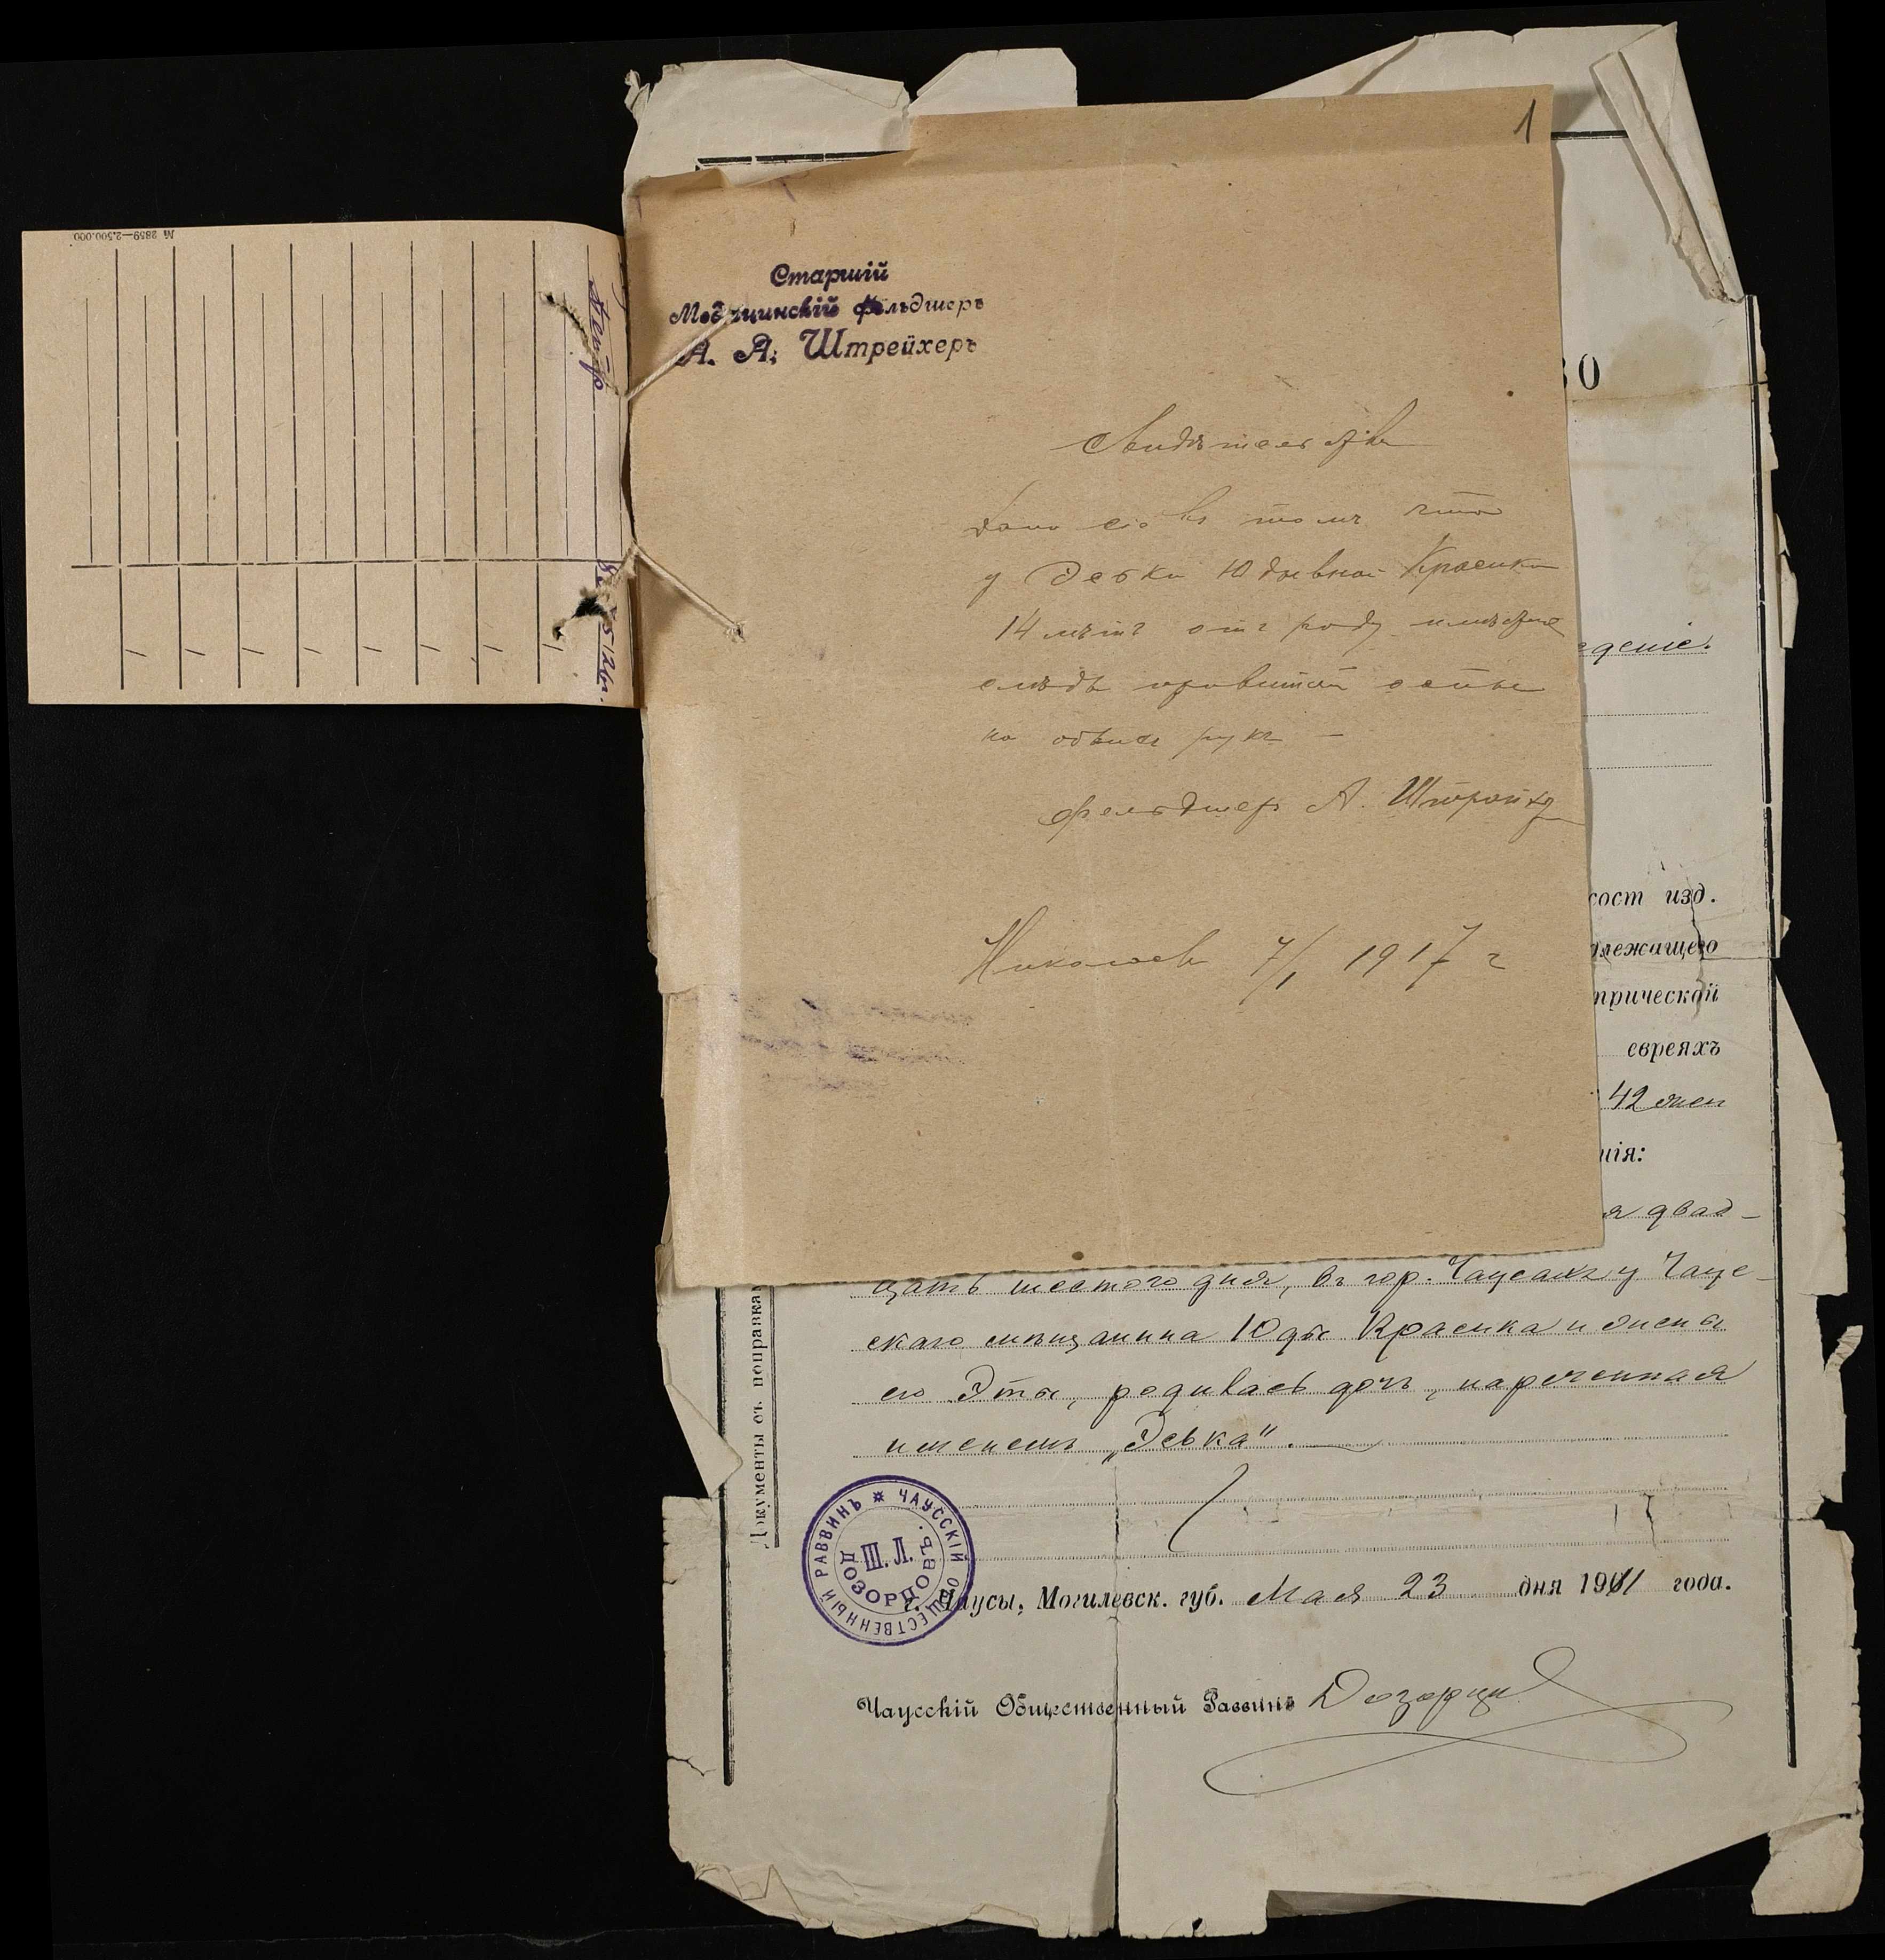 1
№ 2859—2.500.000
Старшій
Медицинскій Фельдшеръ
А. А. Штрейхеръ
Свидѣтельство
Дано сіе въ томъ что
у Эськи Юдовной Красика
14 лѣтъ отъ роду имѣется
слѣды привитой оспы
на обѣихъ рукъ —
фельдшеръ А. Штрейхер
Николаевъ 7/1 1917 г
едение.
сост изд.
длежащего
трической
евреяхъ
42 жен
нія:
я двад-
цать шестого дня, въ гор. Чаусахъ у Чаус-
скаго мѣщанина Юды Красика и жены
его Эты, родилась дочь, нареченная
именемъ „Эська".
Документы съ поправкам
ЧАУССКІЙ ОБЩЕСТВЕННЫЙ РАВВИНЪ
Ш. Л.
ДОЗОРЦОВЪ.
г. Чаусы, Могилевск. губ. Мая 23 дня 1911 года.
Чаусскій Общественный Раввинъ Дозорцов